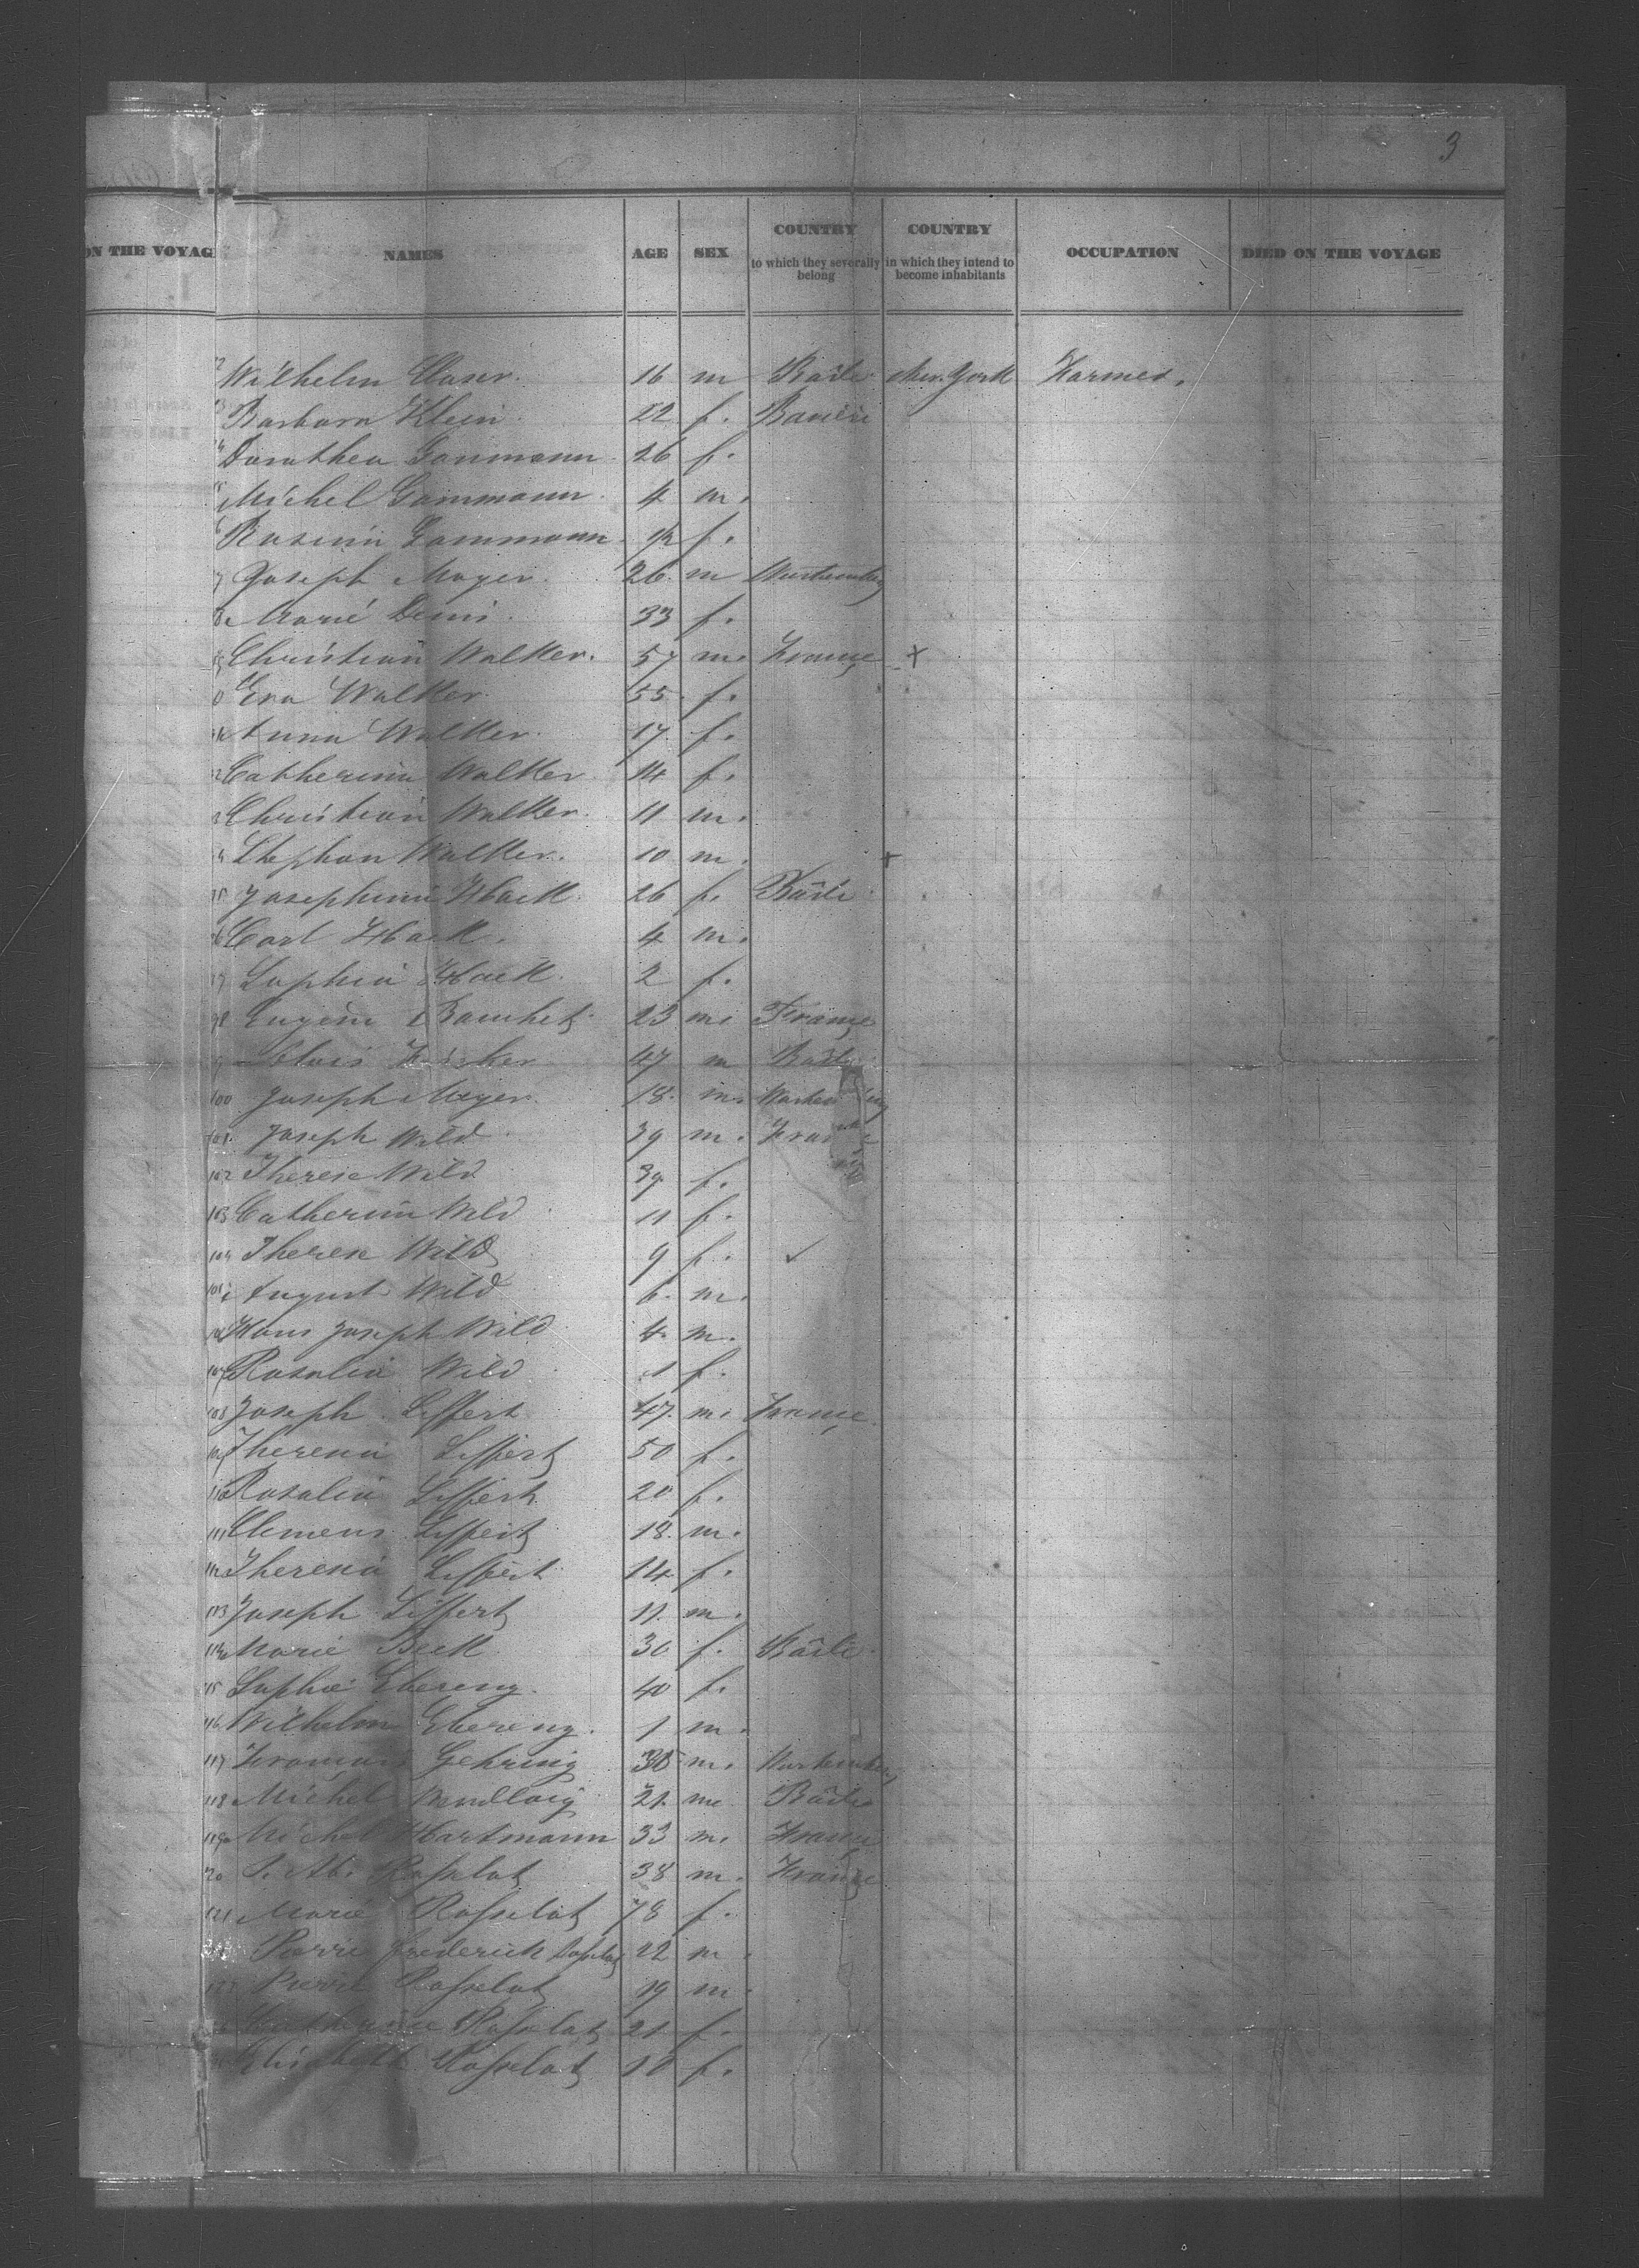 3
ON THE VOYAG NAMES AGE SEX COUNTRY to which they severally belong COUNTRY in which they intend to become inhabitants OCCUPATION DIED ON THE VOYAGE
Wilhelm 16 m Bade New York Farmer.
Barbara Klein 22 f. Baviere
Dorothea Gammann 26 f.
Michel Gammann 4 m.
Rosina Gammann f.
Joseph Mayer 26 m Wurtemberg
Marie Denis 33 f.
Christian Walker. 57 m. France +
Eva Walker 55 f.
Anna Walker. 17 f.
Catherina Walker 14 f.
Christian Walker. 11 m.
Stephan Walker. 10 m. +
Josephina Hack. 26 f. Bade
Carl Hack. 4 m.
97 Sophia Hack. 2 f.
98 Eugene 23 m. France
Alois 47 m Bade
100 Joseph Meyer. 18. m. Wurtemberg
101. Joseph Wild 39 m. France
102 Therese Wild 39 f.
103 Catherina Wild 11 f.
104 Therese Wild 9 f. ✓
August Wild 6. m.
Hans Joseph Wild 4. m.
107 Rosalia Wild 1 f.
108 Joseph Liffert 47. m. France
Theresia Liffert 50 f.
110 Rosalia Liffert 20 f.
111 Clemens Liffert 18. m.
112 Theresia Liffert 14 f.
113 Joseph Liffert 11. m.
114 Marie Beck 30 f. Bade
115 Sophie Ebereny. 40 f.
116 Wilhelm Ebereny. 1 m.
117 François Gehring m. Wurtemberg
118 Michel 21. m Bade
119 Michel Hartmann 33 m. France
20 Rosselot 38 m. France
121 Marie Rosselot 78 f.
Pierre Frederick Rosselot 22 m
Pierre Rosselot 19 m
Catherine Rosselot 21. f.
Elisabeth Rosselot f.